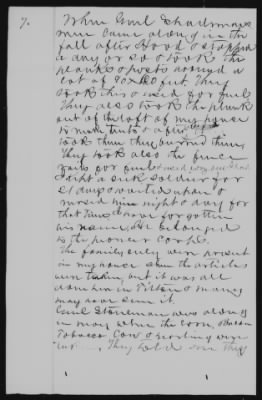 7.
When Genl Shermans
men came along in the
fall after Hood & stopped
a day or so & took the
planks & posts around a
lot of 90 x 60 feet. They
took this & used for fuel
They also took the plank
out of the loft of my house
to make tents & after
took them they burned them,
They took also the fence
rails for fuel
I kept a sick soldier for
21 days & waited upon &
nursed him night & day for
that time. I have forgotten
his name, He belonged
to the pioneer corps.
The family only were present
in my house when the articles
were taken, but it was all
done here in Tilton & many
may have seen it.
Genl Stoneman was along
in May when the corn, & Bacon
Tobacco, Cow & were
They